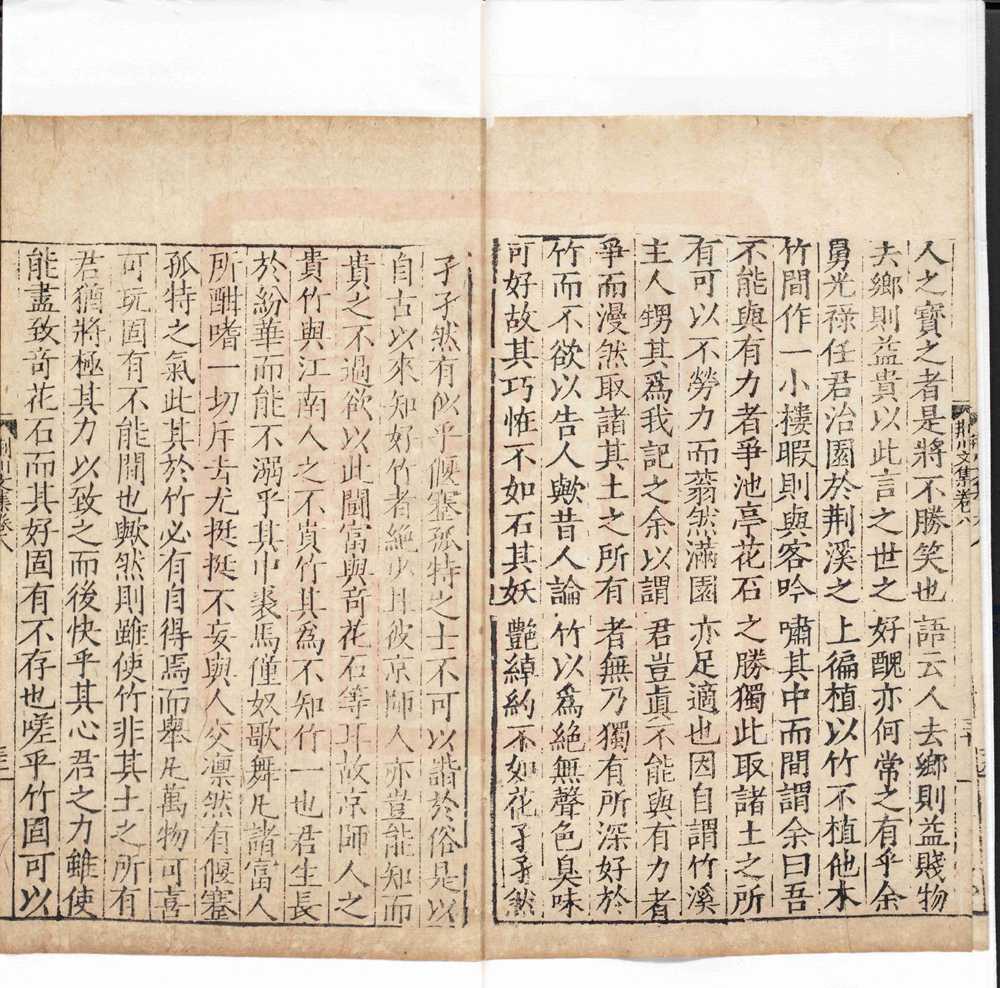 人之寶之者是將不勝笑也語云人去鄉則益賤物
去鄉則益貴以此言之世之好醜亦何常之有乎余
舅光祿任君治園於荆溪之上徧植以竹不植他木
竹間作一小樓暇則與客吟嘯其中而間謂余曰吾
不能與有力者爭池亭花石之勝獨此取諸土之所
有可以不勞力而蓊然滿園亦足適也因自謂竹溪
主人甥其爲我記之余以謂君豈眞不能與有力者
爭而漫然取諸其土之所有者無乃獨有所深好於
竹而不欲以告人歟昔人論竹以爲絶無聲色臭味
可好故其巧恠不如石其妖艷綽約不如花孑孑然
荆川文集卷八
三十
孑孑然有似乎偃蹇孤特之士不可以諧於俗是以
自古以來知好竹者絶少且彼京師人亦豈能知而
貴之不過欲以此鬭富與奇花石等耳故京師人之
貴竹與江南人之不貴竹其爲不知竹一也君生長
於紛華而能不溺乎其中裘馬僮奴歌舞凡諸富人
所酣嗜一切斥去尤挺挺不妄與人交凛然有偃蹇
孤特之氣此其於竹必有自得焉而舉凡萬物可喜
可玩固有不能間也歟然則雖使竹非其土之所有
君猶將極其力以致之而後快乎其心君之力雖使
能盡致奇花石而其好固有不存也嗟乎竹固可以
荆川文集卷八